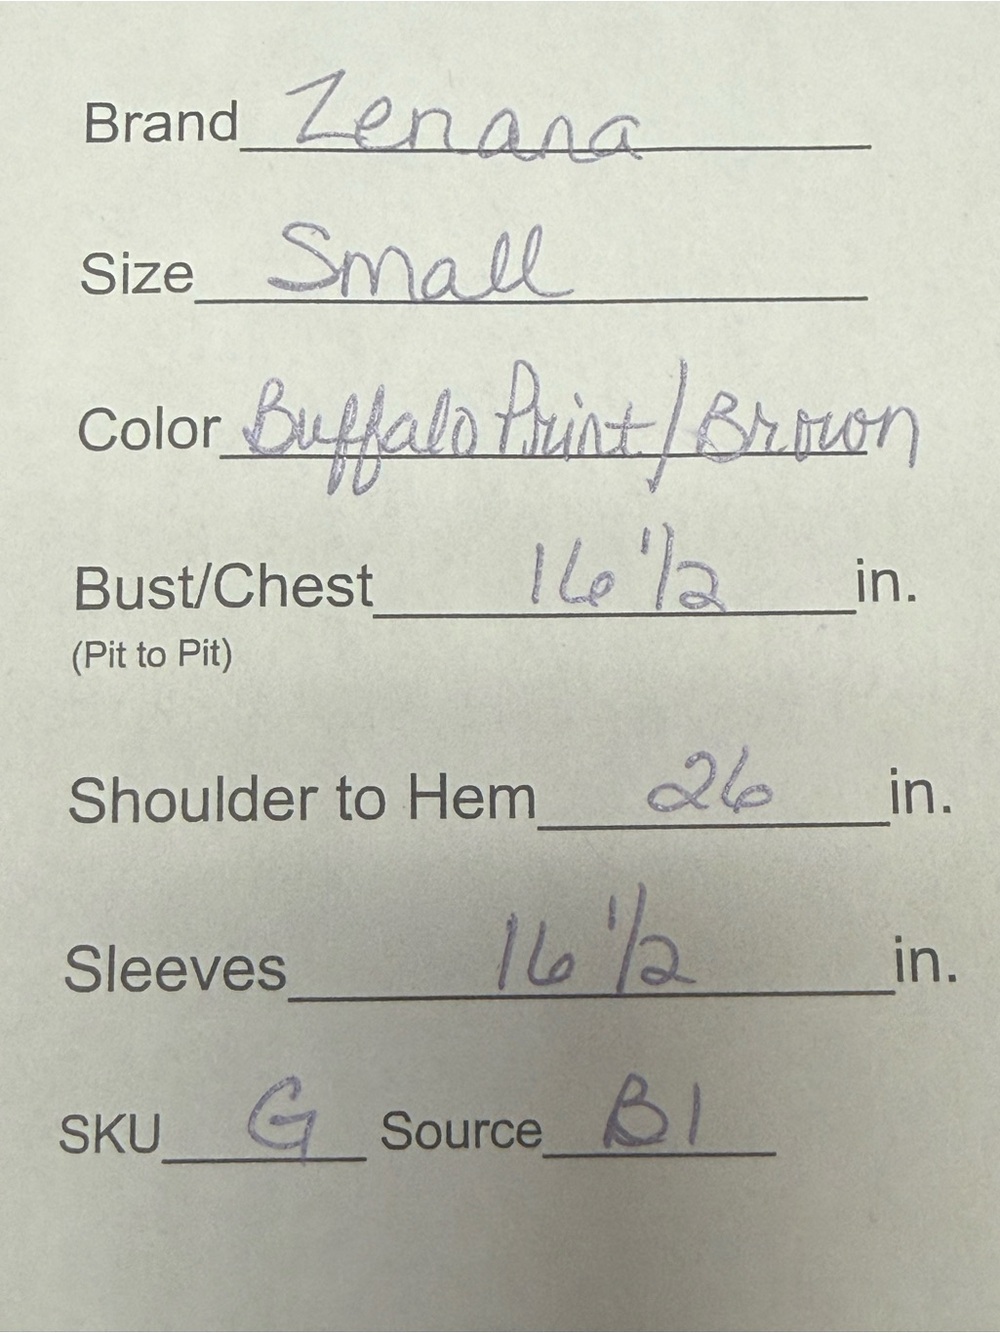 Brand Zenana
Size Small
Color Buffalo Print/Brown
Bust/Chest 16 1/2 in.
(Pit to Pit)
Shoulder to Hem 26 in.
Sleeves 16 1/2 in.
SKU G Source B1